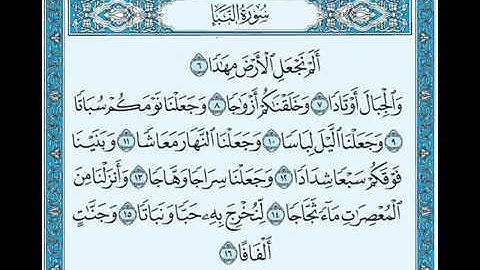 سُورَةُ النَّبَإِ
أَلَمْ نَجْعَلِ الْأَرْضَ مِهَادًا ٦
وَالْجِبَالَ أَوْتَادًا ٧ وَخَلَقْنَاكُمْ أَزْوَاجًا ٨ وَجَعَلْنَا نَوْمَكُمْ سُبَاتًا
٩ وَجَعَلْنَا اللَّيْلَ لِبَاسًا ١٠ وَجَعَلْنَا النَّهَارَ مَعَاشًا ١١ وَبَنَيْنَا
فَوْقَكُمْ سَبْعًا شِدَادًا ١٢ وَجَعَلْنَا سِرَاجًا وَهَّاجًا ١٣ وَأَنزَلْنَا مِنَ
الْمُعْصِرَاتِ مَاءً ثَجَّاجًا ١٤ لِّنُخْرِجَ بِهِۦ حَبًّا وَنَبَاتًا ١٥ وَجَنَّاتٍ
أَلْفَافًا ١٦